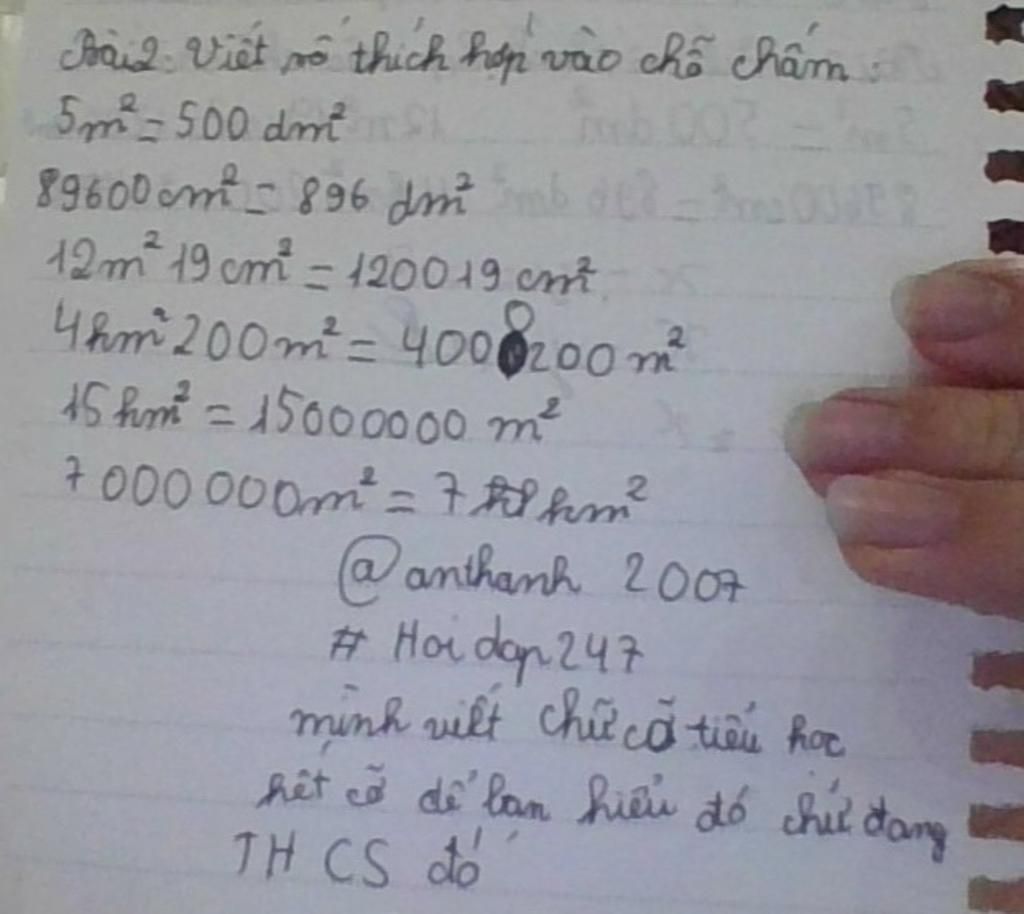 Bài 2: Viết số thích hợp vào chỗ chấm:
5m² = 500 dm²
89600 cm² = 896 dm²
12m² 19 cm² = 120019 cm²
4hm² 200m² = 4000200 m²
15 hm² = 15000000 m²
7 000 000m² = 7 hm²
@anthanh 2007
# Hoidap247
mình viết chữ cỡ tiểu học
hết cỡ để bạn hiểu đó chứ đang
THCS đó